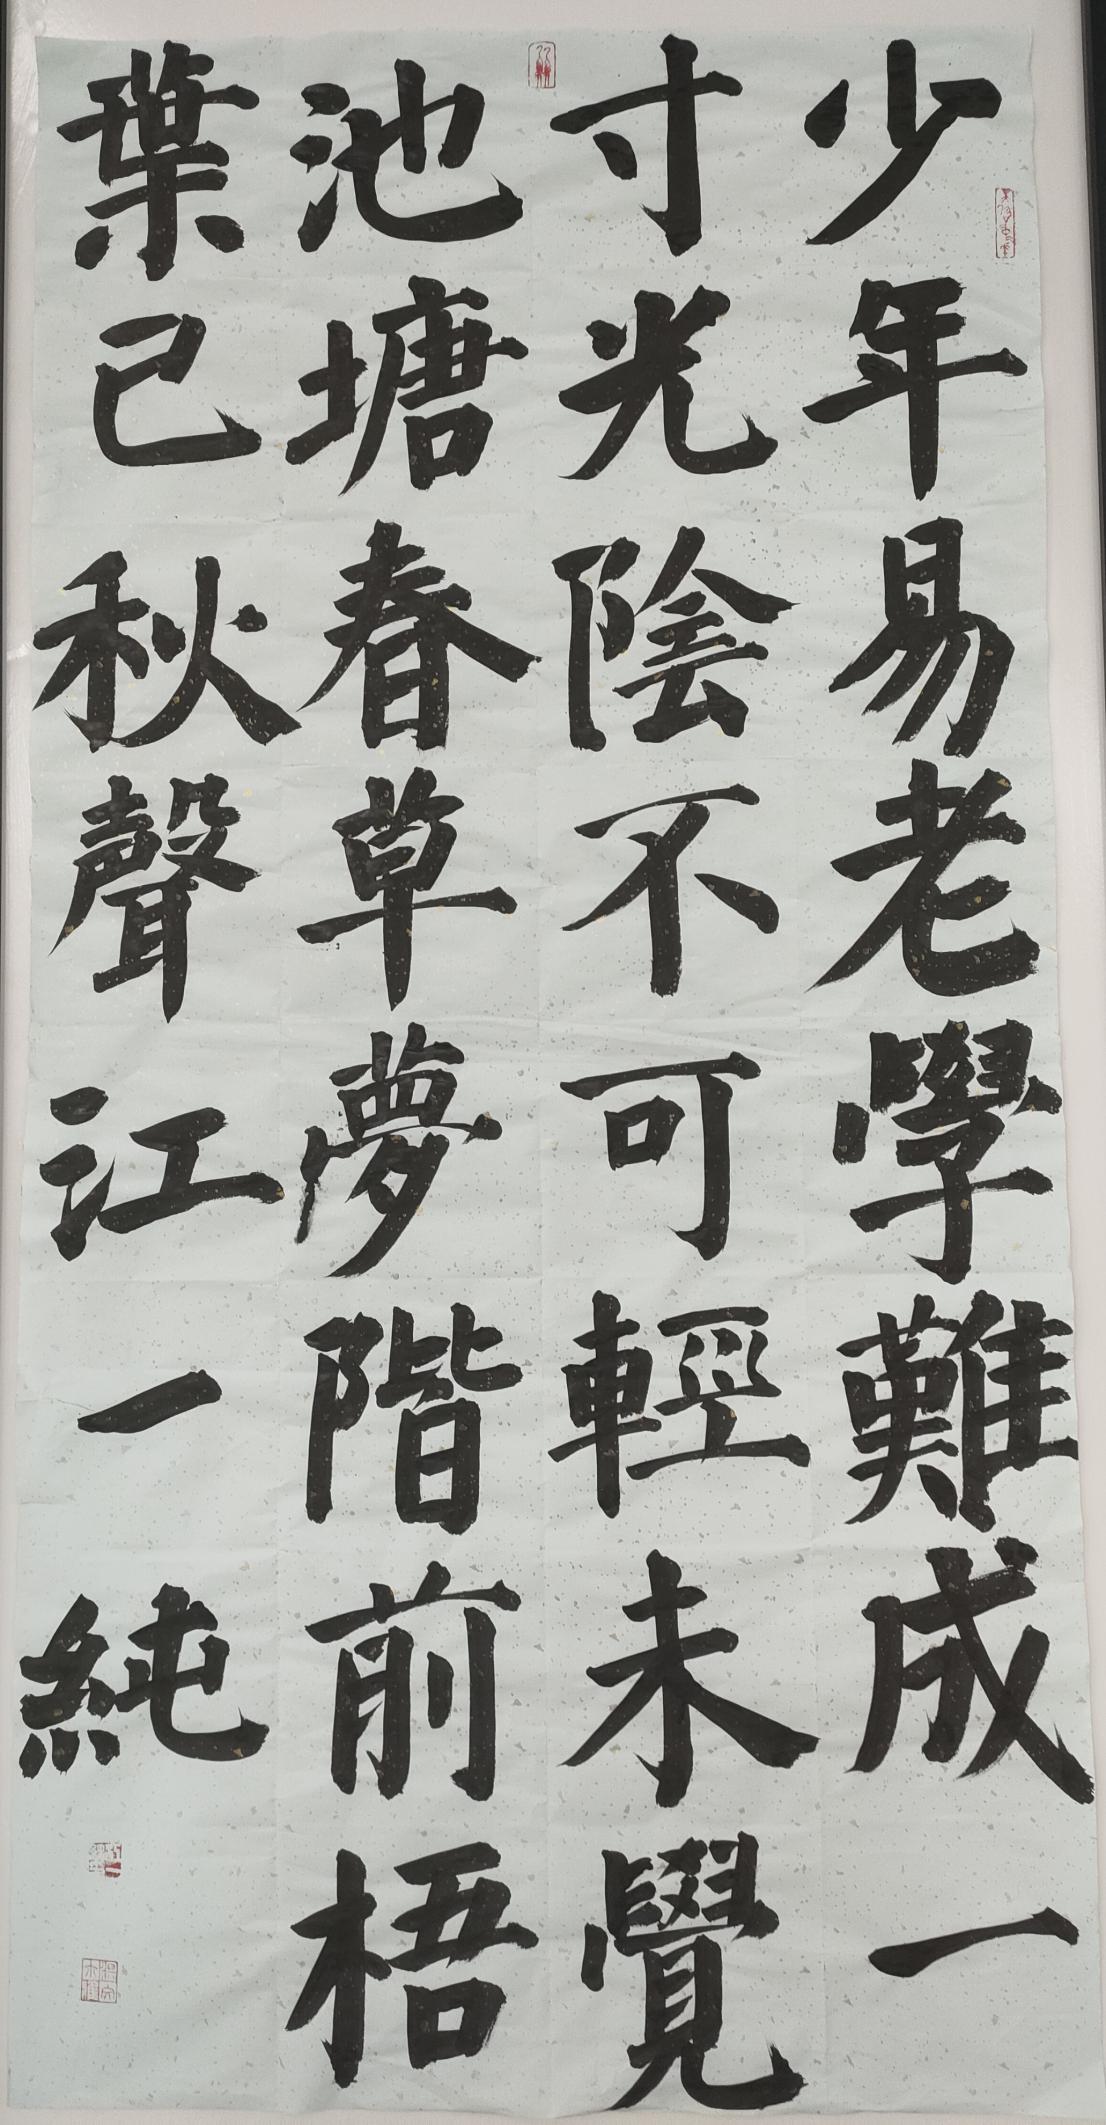 少年易老學難成一
寸光陰不可輕未覺
池塘春草夢階前梧
葉已秋聲江一純